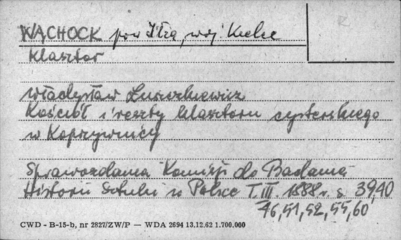 WĄCHOCK pow Iłża, woj. Kielce
klasztor
Władysław Łuszczkiewicz
Kościół i reszty klasztoru cysterskiego
w Koprzywnicy
Sprawozdania Komisji do Badania
Historii Sztuki w Polsce T. III 1888 r. s. 39,40
46,51,52,55,60
CWD - B-15-b, nr 2827/ZW/P — WDA 2694 13.12.62 1.700.000
R